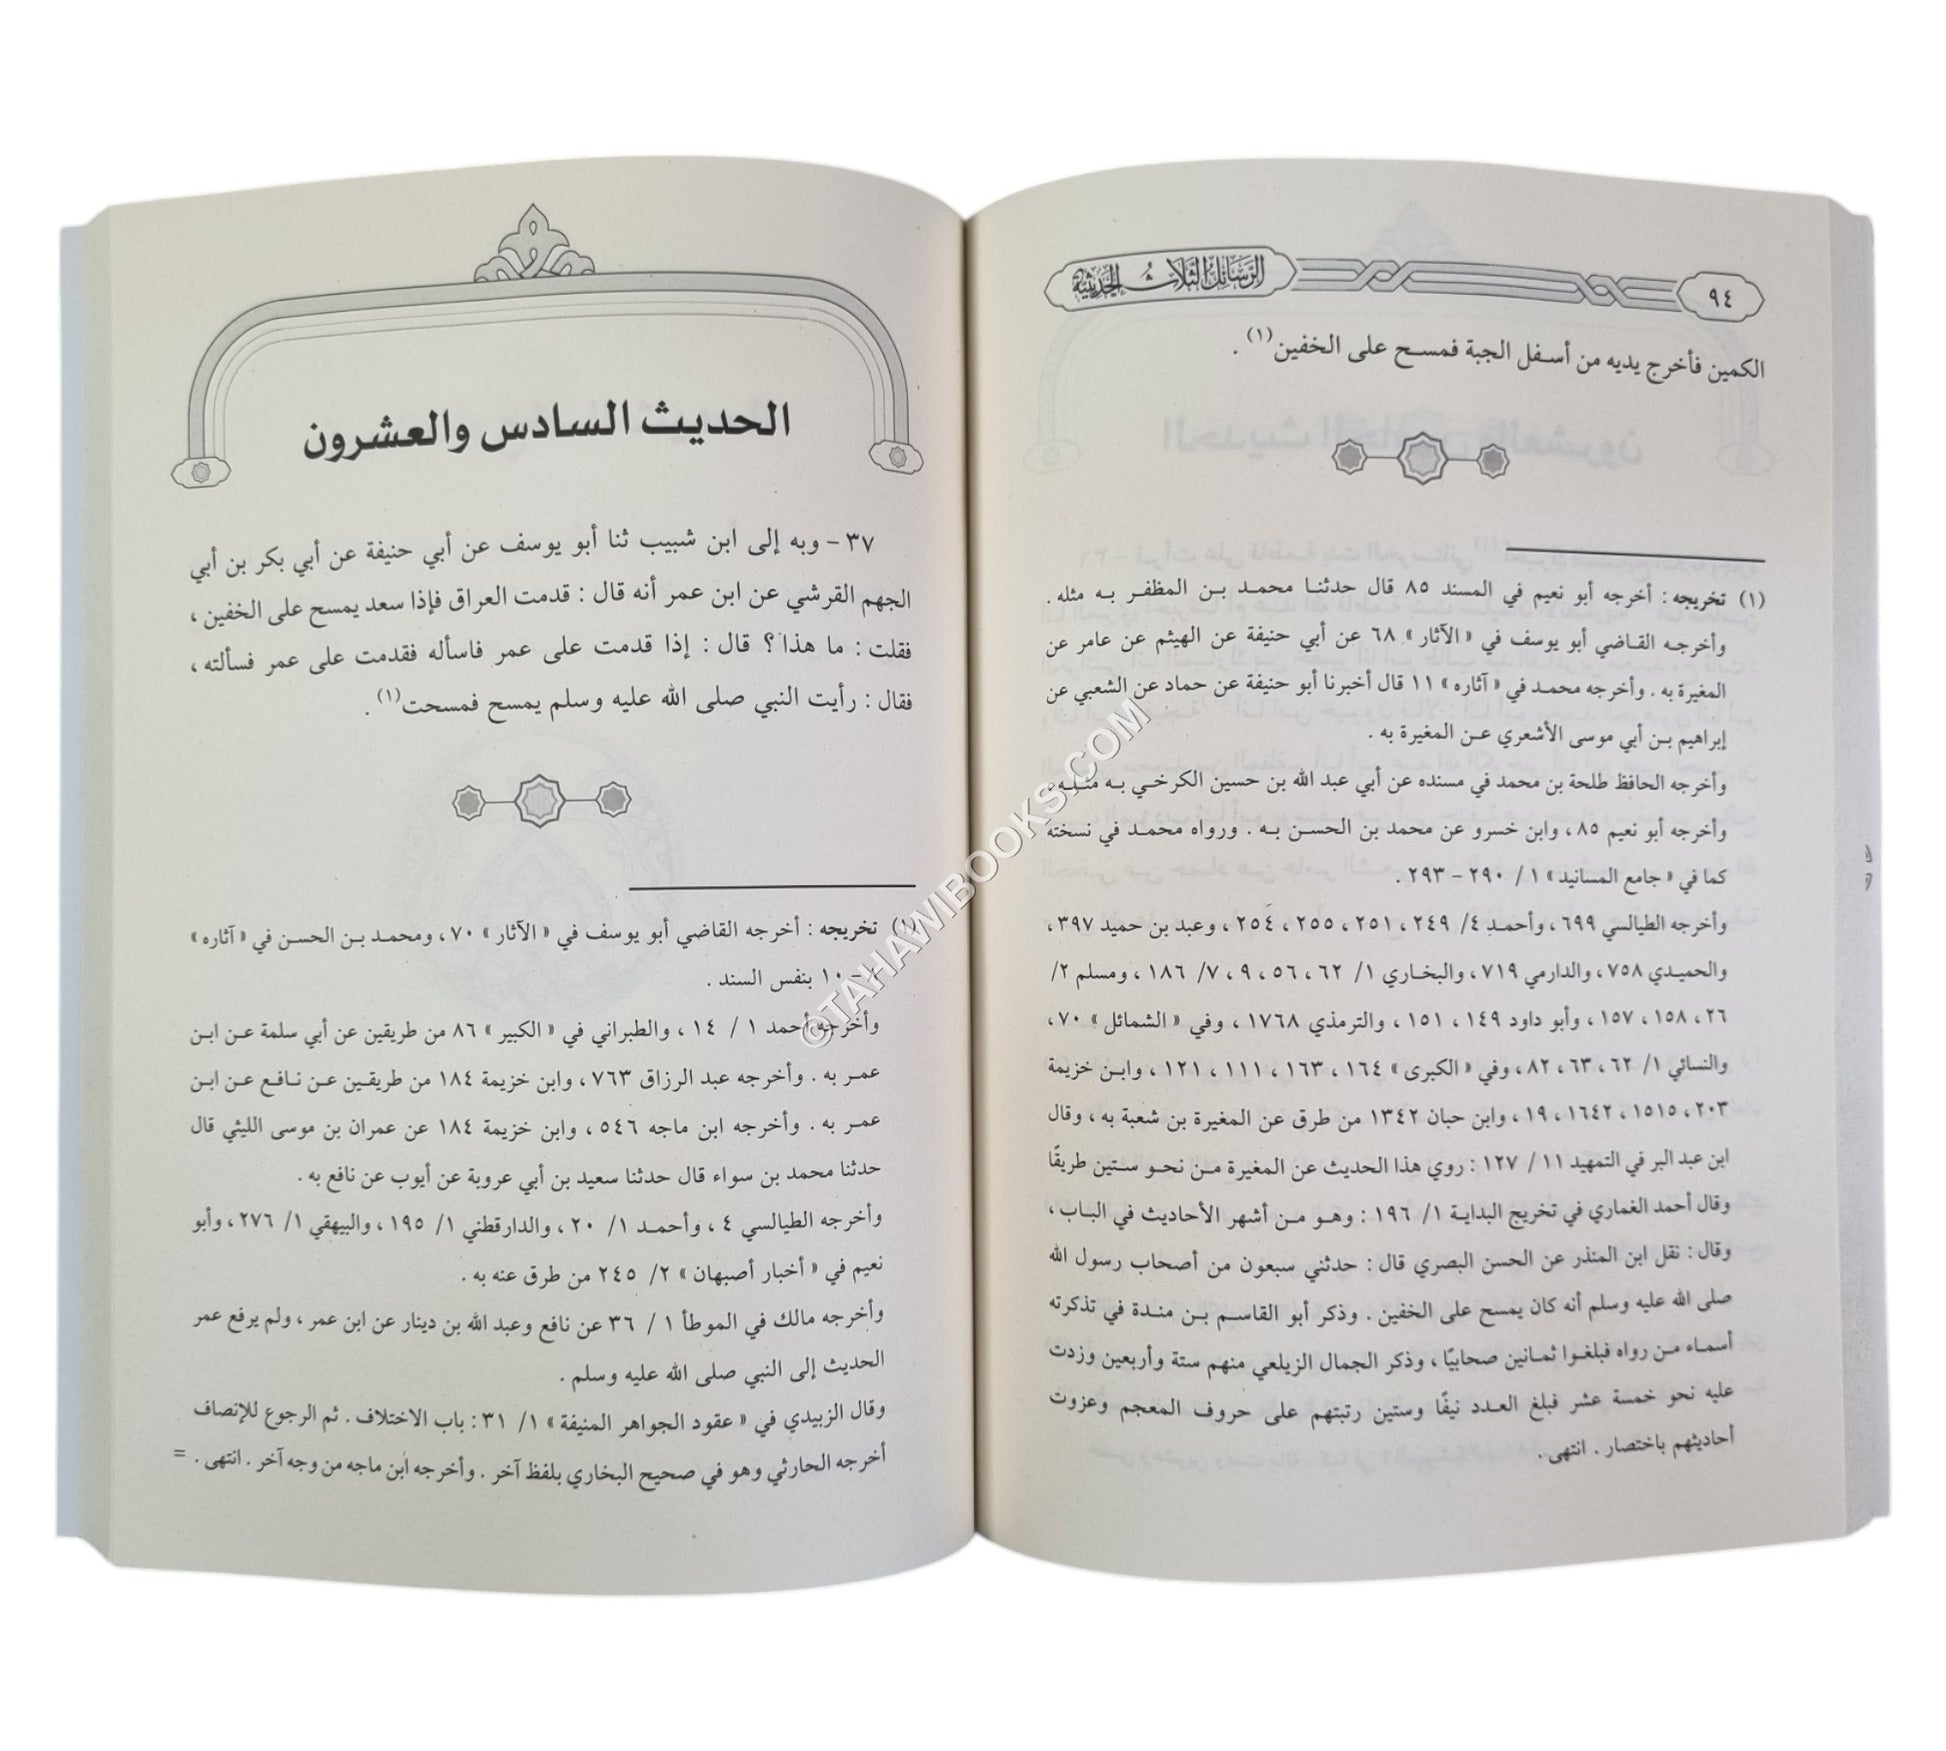 ٩٤
الرسائل الثلاث الحديثية
الكمين فأخرج يديه من أسفل الجبة فمسح على الخفين(١) .
(١) تخريجه : أخرجه أبو نعيم في المسند ٨٥ قال حدثنا محمد بن المظفر به مثله .
وأخرجه القاضي أبو يوسف في « الآثار » ٦٨ عن أبي حنيفة عن الهيثم عن عامر عن
المغيرة به . وأخرجه محمد في « آثاره » ١١ قال أخبرنا أبو حنيفة عن حماد عن الشعبي عن
إبراهيم بن أبي موسى الأشعري عن المغيرة به .
وأخرجه الحافظ طلحة بن محمد في مسنده عن أبي عبد الله بن حسين الكرخي به مثله ،
وأخرجه أبو نعيم ٨٥ ، وابن خسرو عن محمد بن الحسن به . ورواه محمد في نسخته
كما في « جامع المسانيد » ١ / ٢٩٠ – ٢٩٣ .
وأخرجه الطيالسي ٦٩٩ ، وأحمد ٤/ ٢٤٩ ، ٢٥١ ، ٢٥٥ ، ٢٥٤ ، وعبد بن حميد ٣٩٧ ،
والحميدي ٧٥٨ ، والدارمي ٧١٩ ، والبخاري ١/ ٦٢ ، ٥٦ ، ٩ ، ٧/ ١٨٦ ، ومسلم ٢/
٢٦ ، ١٥٨ ، ١٥٧ ، وأبو داود ١٤٩ ، ١٥١ ، والترمذي ١٧٦٨ ، وفي « الشمائل » ٧٠ ،
والنسائي ١/ ٦٢ ، ٦٣ ، ٨٢ ، وفي « الكبرى » ١٦٤ ، ١٦٣ ، ١١١ ، ١٢١ ، وابن خزيمة
٢٠٣ ، ١٥١٥ ، ١٦٤٢ ، ١٩ ، وابن حبان ١٣٤٢ من طرق عن المغيرة بن شعبة به ، وقال
ابن عبد البر في التمهيد ١١ / ١٢٧ : روي هذا الحديث عن المغيرة من نحو ستين طريقًا
وقال أحمد الغماري في تخريج البداية ١/ ١٩٦ : وهو من أشهر الأحاديث في الباب ،
وقال : نقل ابن المنذر عن الحسن البصري قال : حدثني سبعون من أصحاب رسول الله
صلى الله عليه وسلم أنه كان يمسح على الخفين . وذكر أبو القاسم بن مندة في تذكرته
أسماء من رواه فبلغوا ثمانين صحابيًا ، وذكر الجمال الزيلعي منهم ستة وأربعين وزدت
عليه نحو خمسة عشر فبلغ العدد نيفًا وستين رتبتهم على حروف المعجم وعزوت
أحاديثهم باختصار . انتهى .
الحديث السادس والعشرون
٣٧ – وبه إلى ابن شبيب ثنا أبو يوسف عن أبي حنيفة عن أبي بكر بن أبي
الجهم القرشي عن ابن عمر أنه قال : قدمت العراق فإذا سعد يمسح على الخفين ،
فقلت : ما هذا ؟ قال : إذا قدمت على عمر فاسأله فقدمت على عمر فسألته ،
فقال : رأيت النبي صلى الله عليه وسلم يمسح فمسحت(١) .
(١) تخريجه : أخرجه القاضي أبو يوسف في « الآثار » ٧٠ ، ومحمد بن الحسن في « آثاره »
– ١٠ بنفس السند .
وأخرجه أحمد ١ / ١٤ ، والطبراني في « الكبير » ٨٦ من طريقين عن أبي سلمة عن ابن
عمر به . وأخرجه عبد الرزاق ٧٦٣ ، وابن خزيمة ١٨٤ من طريقين عن نافع عن ابن
عمر به . وأخرجه ابن ماجه ٥٤٦ ، وابن خزيمة ١٨٤ عن عمران بن موسى الليثي قال
حدثنا محمد بن سواء قال حدثنا سعيد بن أبي عروبة عن أيوب عن نافع به .
وأخرجه الطيالسي ٤ ، وأحمد ١/ ٢٠ ، والدارقطني ١/ ١٩٥ ، والبيهقي ١/ ٢٧٦ ، وأبو
نعيم في « أخبار أصبهان » ٢/ ٢٤٥ من طرق عنه به .
وأخرجه مالك في الموطأ ١ / ٣٦ عن نافع وعبد الله بن دينار عن ابن عمر ، ولم يرفع عمر
الحديث إلى النبي صلى الله عليه وسلم .
وقال الزبيدي في « عقود الجواهر المنيفة » ١/ ٣١ : باب الاختلاف . ثم الرجوع للإنصاف
أخرجه الحارثي وهو في صحيح البخاري بلفظ آخر . وأخرجه ابن ماجه من وجه آخر . انتهى . =
©TAHAWIBOOKS.COM